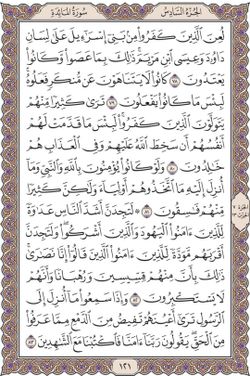 الجزء السادس سورة المائدة
لعن الذين كفروا من بني إسرءيل على لسان
داوۥد وعيسى ابن مريم ذلك بما عصوا وكانوا
يعتدون ٧٨ كانوا لا يتناهون عن منكر فعلوه
لبئس ما كانوا يفعلون ٧٩ ترى كثيرا منهم
يتولون الذين كفروا لبئس ما قدمت لهم
أنفسهم أن سخط الله عليهم وفي العذاب هم
خلدون ٨٠ ولو كانوا يؤمنون بالله والنبي وما
أنزل إليه ما اتخذوهم أولياء ولكن كثيرا
منهم فسقون ٨١ ۞ لتجدن أشد الناس عدوة
للذين ءامنوا اليهود والذين أشركوا ولتجدن
أقربهم مودة للذين ءامنوا الذين قالوا إنا نصرى
ذلك بأن منهم قسيسين ورهبانا وأنهم
لا يستكبرون ٨٢ وإذا سمعوا ما أنزل إلى
الرسول ترى أعينهم تفيض من الدمع مما عرفوا
من الحق يقولون ربنا ءامنا فاكتبنا مع الشهدين ٨٣
١٢١